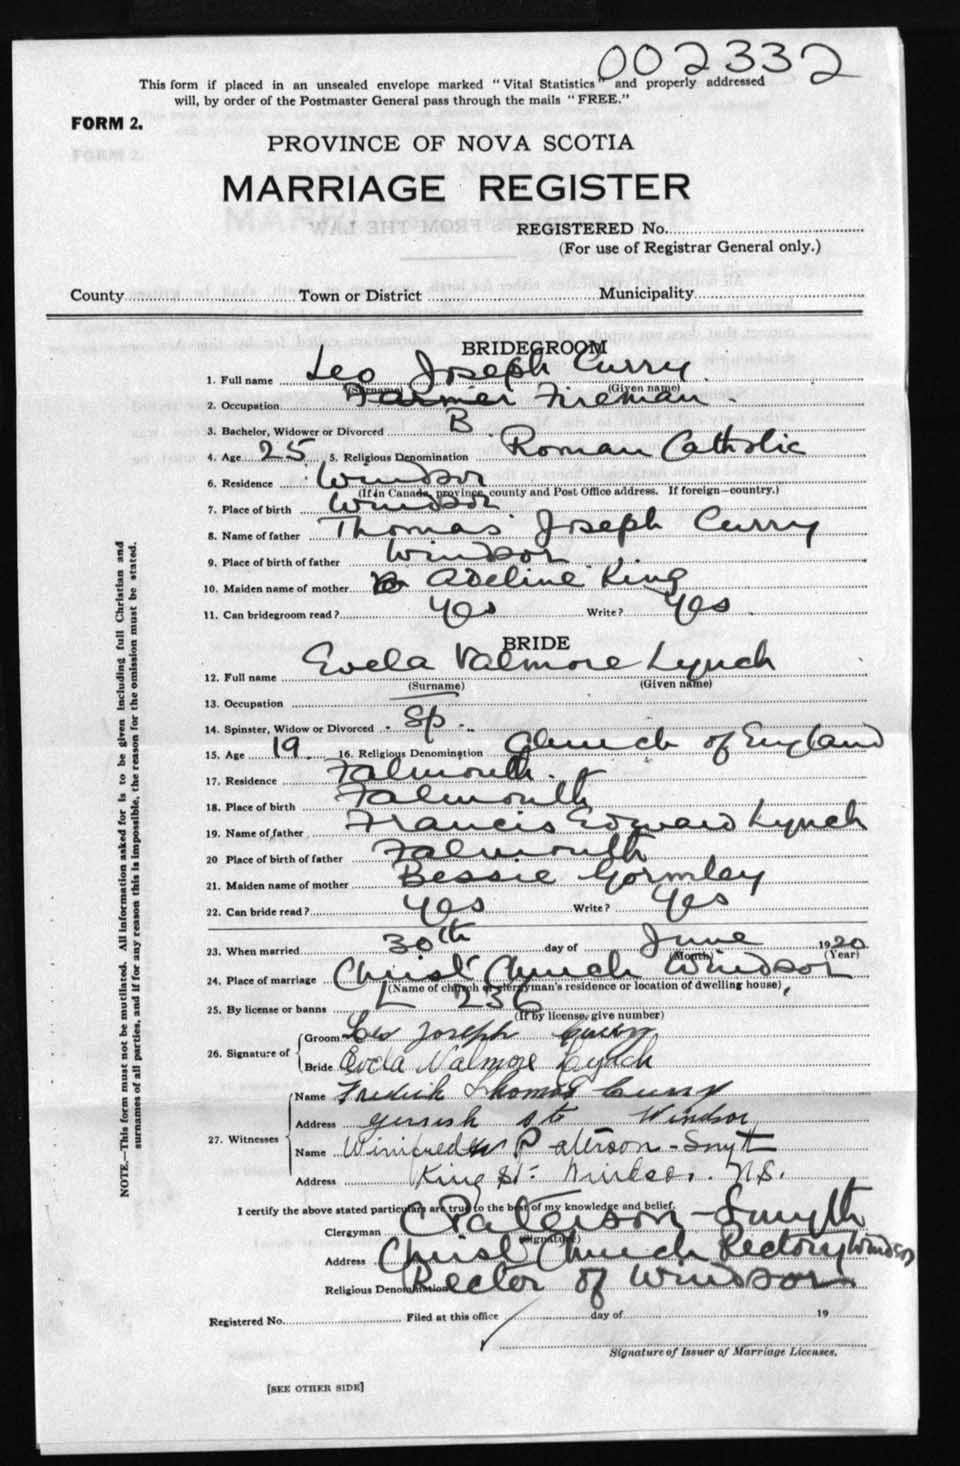 002332
This form if placed in an unsealed envelope marked "Vital Statistics" and properly addressed
will, by order of the Postmaster General pass through the mails "FREE."
FORM 2.
PROVINCE OF NOVA SCOTIA
MARRIAGE REGISTER
REGISTERED No.
(For use of Registrar General only.)
County Town or District Municipality
BRIDEGROOM
1. Full name Leo Joseph Curry
(Surname) (Given name)
2. Occupation Farmer Fireman.
3. Bachelor, Widower or Divorced B
4. Age 25 5. Religious Denomination Roman Catholic
6. Residence Windsor
(If in Canada, province, county and Post Office address. If foreign—country.)
7. Place of birth Windsor
8. Name of father Thomas Joseph Curry
9. Place of birth of father Windsor
10. Maiden name of mother Adeline King
11. Can bridegroom read? Yes Write? Yes
BRIDE
12. Full name Evela Valmore Lynch
(Surname) (Given name)
13. Occupation
14. Spinster, Widow or Divorced Sp.
15. Age 19 16. Religious Denomination Church of England
17. Residence Falmouth.
18. Place of birth Falmouth
19. Name of father Francis Edward Lynch
20 Place of birth of father Falmouth
21. Maiden name of mother Bessie Gormley
22. Can bride read? Yes Write? Yes
23. When married 30th day of June 1920
(Month) (Year)
24. Place of marriage Christ Church Windsor
(Name of church or clergyman's residence or location of dwelling house)
25. By license or banns L 236
(If by license, give number)
26. Signature of
Groom Leo Joseph Curry
Bride Evela Valmore Lynch
27. Witnesses
Name Fredrick Thomas Curry
Address Gerrish st Windsor
Name Winifred Paterson-Smyth
Address King St. Windsor. N.S.
I certify the above stated particulars are true to the best of my knowledge and belief.
Clergyman Paterson-Smyth
(Signature)
Address Christ Church Rectory Windsor
Religious Denomination Rector of Windsor
Registered No. Filed at this office day of 19
Signature of Issuer of Marriage Licenses.
[SEE OTHER SIDE]
NOTE.—This form must not be mutilated. All information asked for is to be given including full Christian and
surnames of all parties, and if for any reason this is impossible, the reason for the omission must be stated.